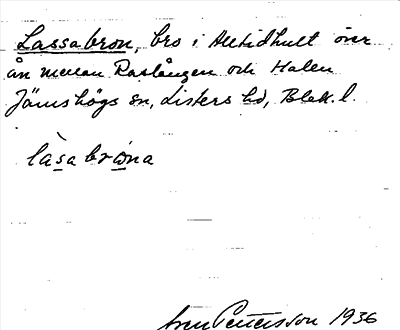 Lassabron, bro i Alltidhult över
ån mellan Raslången och Halen
Jämshögs sn, Listers hd, Blek. l.
làsa bròna
Sven Pettersson 1936